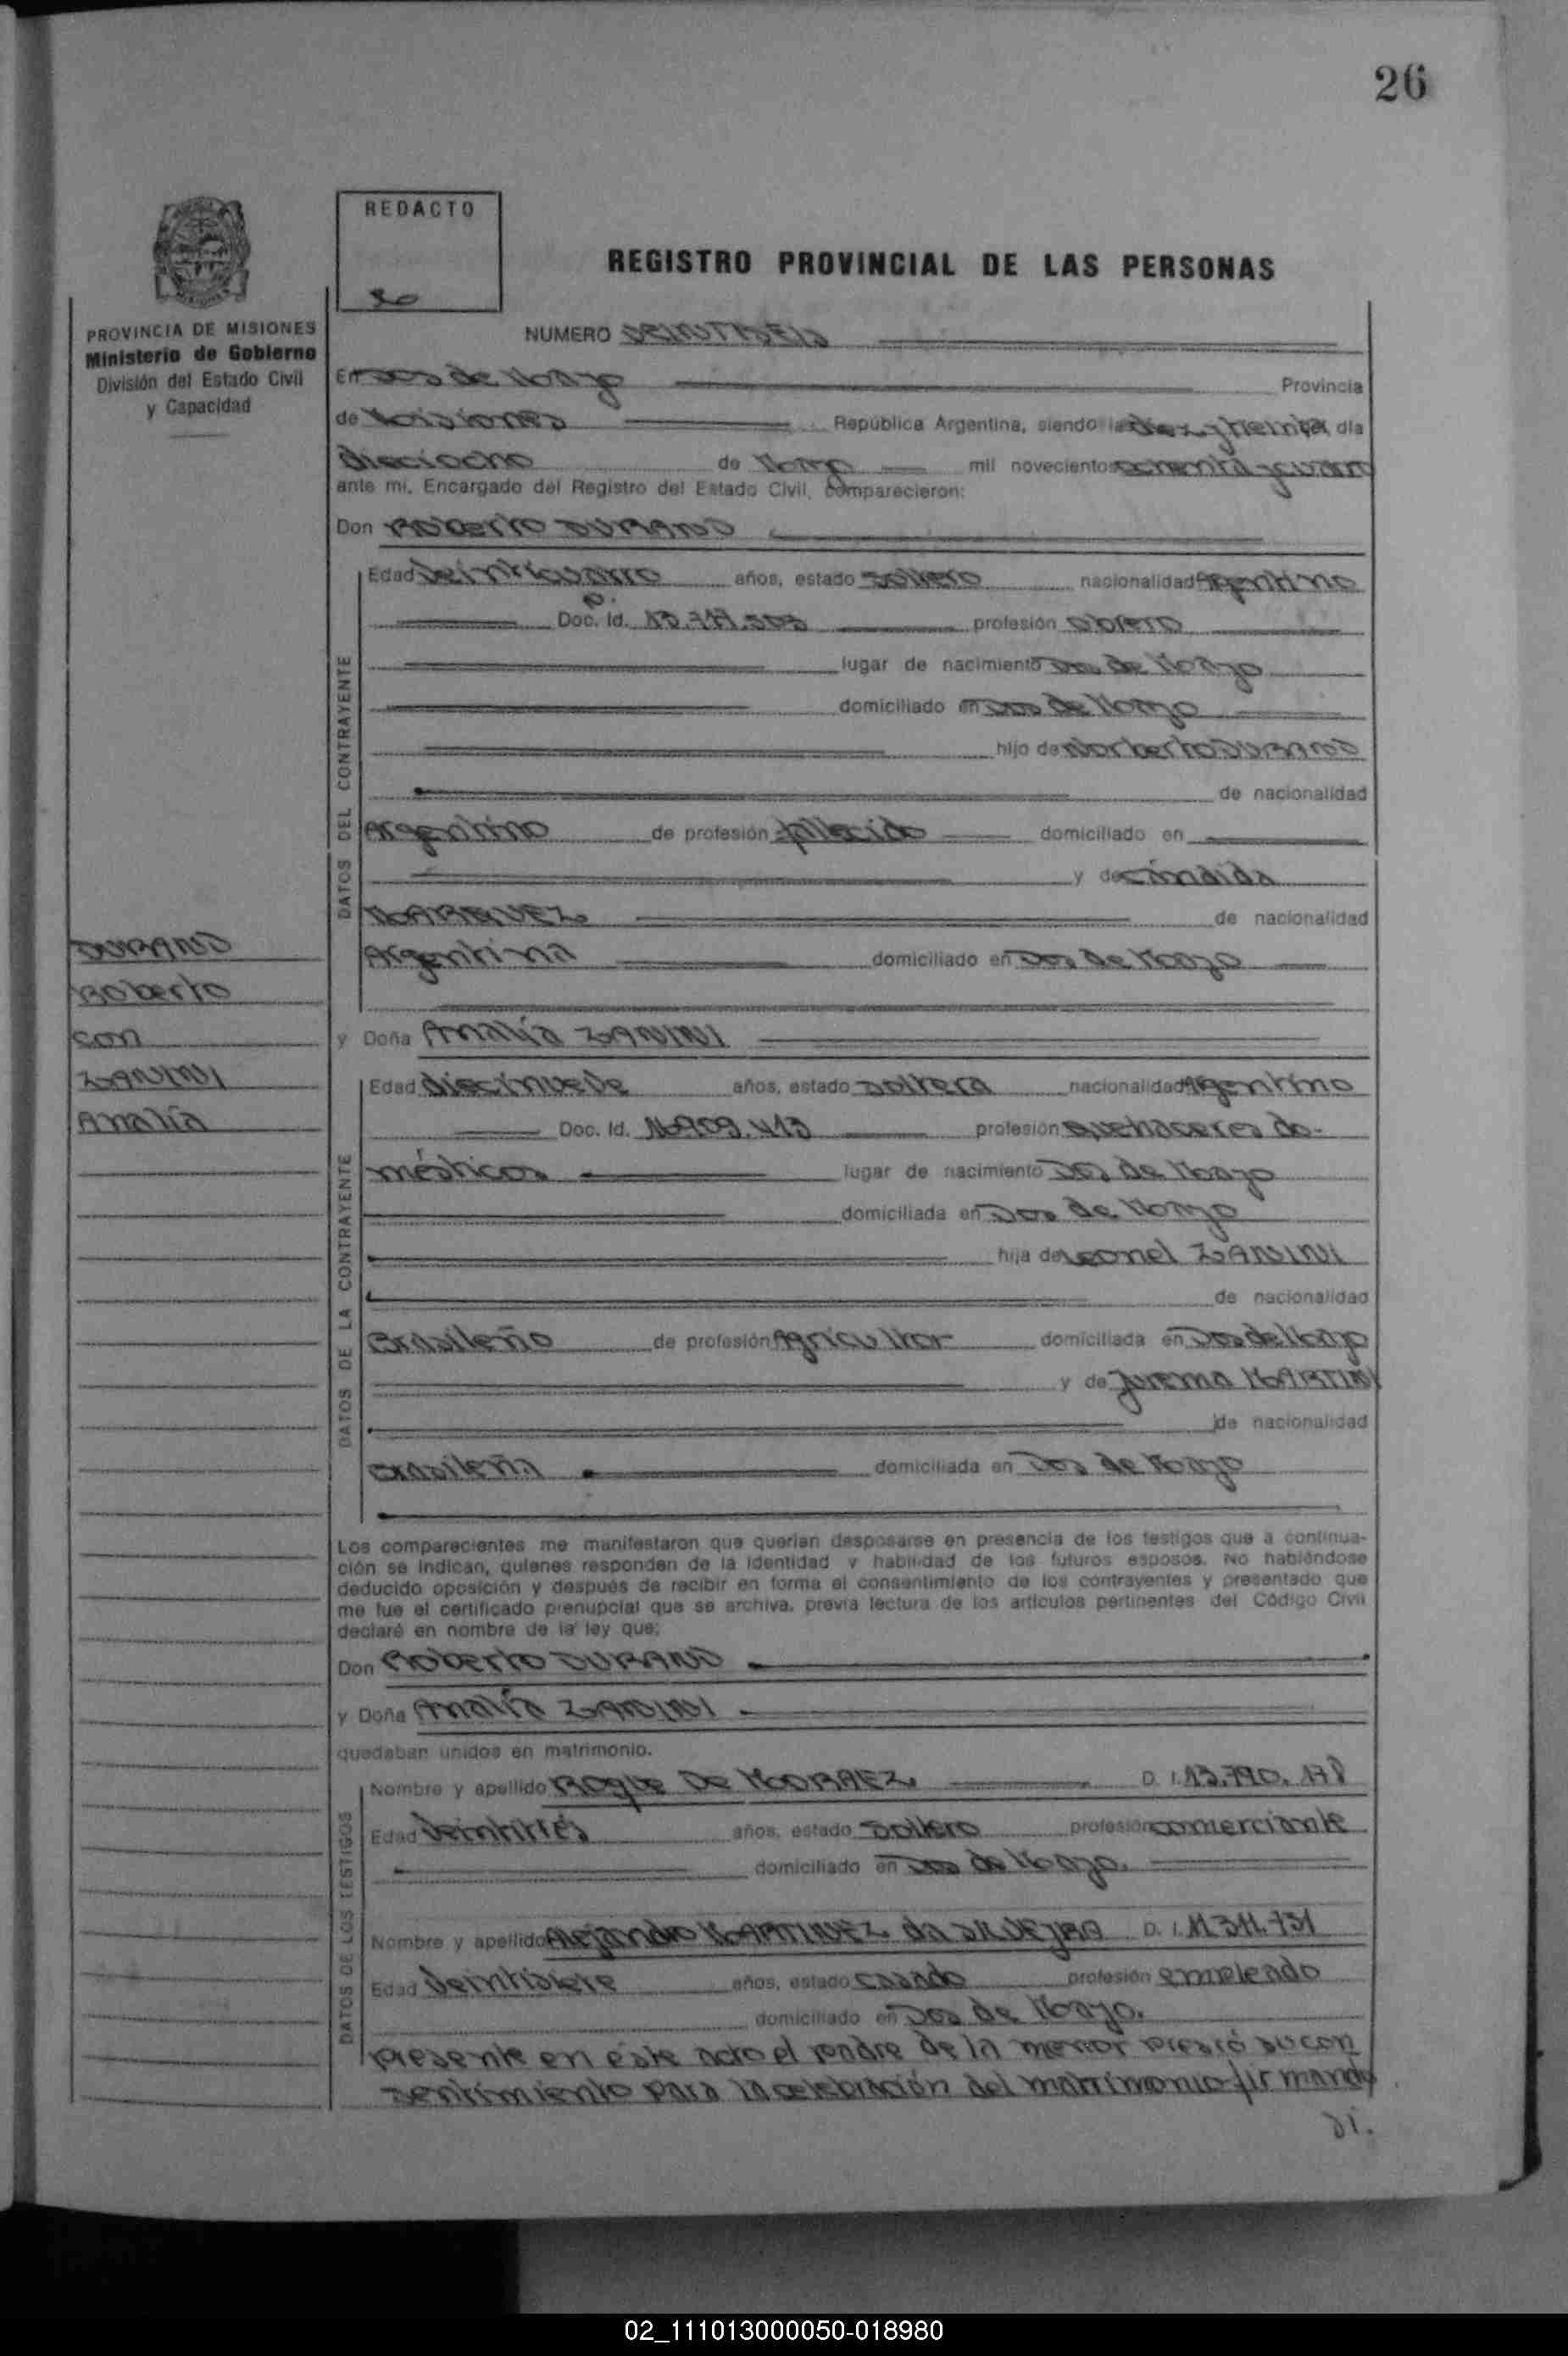 26
REDACTO
REGISTRO PROVINCIAL DE LAS PERSONAS
PROVINCIA DE MISIONES
Ministerio de Gobierno
División del Estado Civil
y Capacidad
NUMERO VEINTISEIS
En Dos de Mayo Provincia
de Misiones República Argentina, siendo las diez y treinta día
dieciocho de Mayo mil novecientos ochenta y cuatro
ante mi, Encargado del Registro del Estado Civil, comparecieron:
Don Roberto DURAND
Edad veinticuatro años, estado soltero nacionalidad Argentino
Doc. Id. profesión obrero
lugar de nacimiento Dos de Mayo
domiciliado en Dos de Mayo
hijo de Norberto DURAND
de nacionalidad
Argentino de profesión fallecido domiciliado en
y de cándida
MARQUEZ de nacionalidad
Argentina domiciliado en Dos de Mayo
y Doña Analía ZANINI
Edad diecinueve años, estado soltera nacionalidad Argentino
Doc. Id. 16.909.413 profesión quehaceres do-
mésticos lugar de nacimiento Dos de Mayo
domiciliada en Dos de Mayo
hija de Leonel ZANINI
de nacionalidad
Brasileño de profesión Agricultor domiciliada en Dos de Mayo
y de Jurema MARTINI
de nacionalidad
Brasileña domiciliada en Dos de Mayo
DATOS DEL CONTRAYENTE
DATOS DE LA CONTRAYENTE
DURAND
Roberto
con
ZANINI
Analía
Los comparecientes me manifestaron que querían desposarse en presencia de los testigos que a continua-
ción se indican, quienes responden de la identidad y habilidad de los futuros esposos. No habiéndose
deducido oposición y después de recibir en forma el consentimiento de los contrayentes y presentado que
me fue el certificado prenupcial que se archiva, previa lectura de los artículos pertinentes del Código Civil
declaré en nombre de la ley que:
Don Roberto DURAND
y Doña Analía ZANINI
quedaban unidos en matrimonio.
DATOS DE LOS TESTIGOS
Nombre y apellido Roque De MORAEZ D. I. 13.790.178
Edad veintitrés años, estado soltero profesión comerciante
domiciliado en Dos de Mayo.
Nombre y apellido Alejandro MARTINEZ da SILVEJRA D. I. 11.311.731
Edad veintisiete años, estado casado profesión empleado
domiciliado en Dos de Mayo.
Presente en este acto el padre de la menor prestó su con
sentimiento para la celebración del matrimonio firmando
si.
02_111013000050-018980